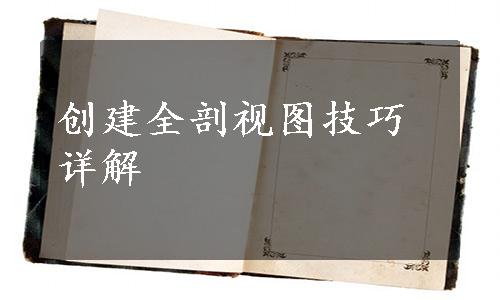 创建全剖视图技巧
详解